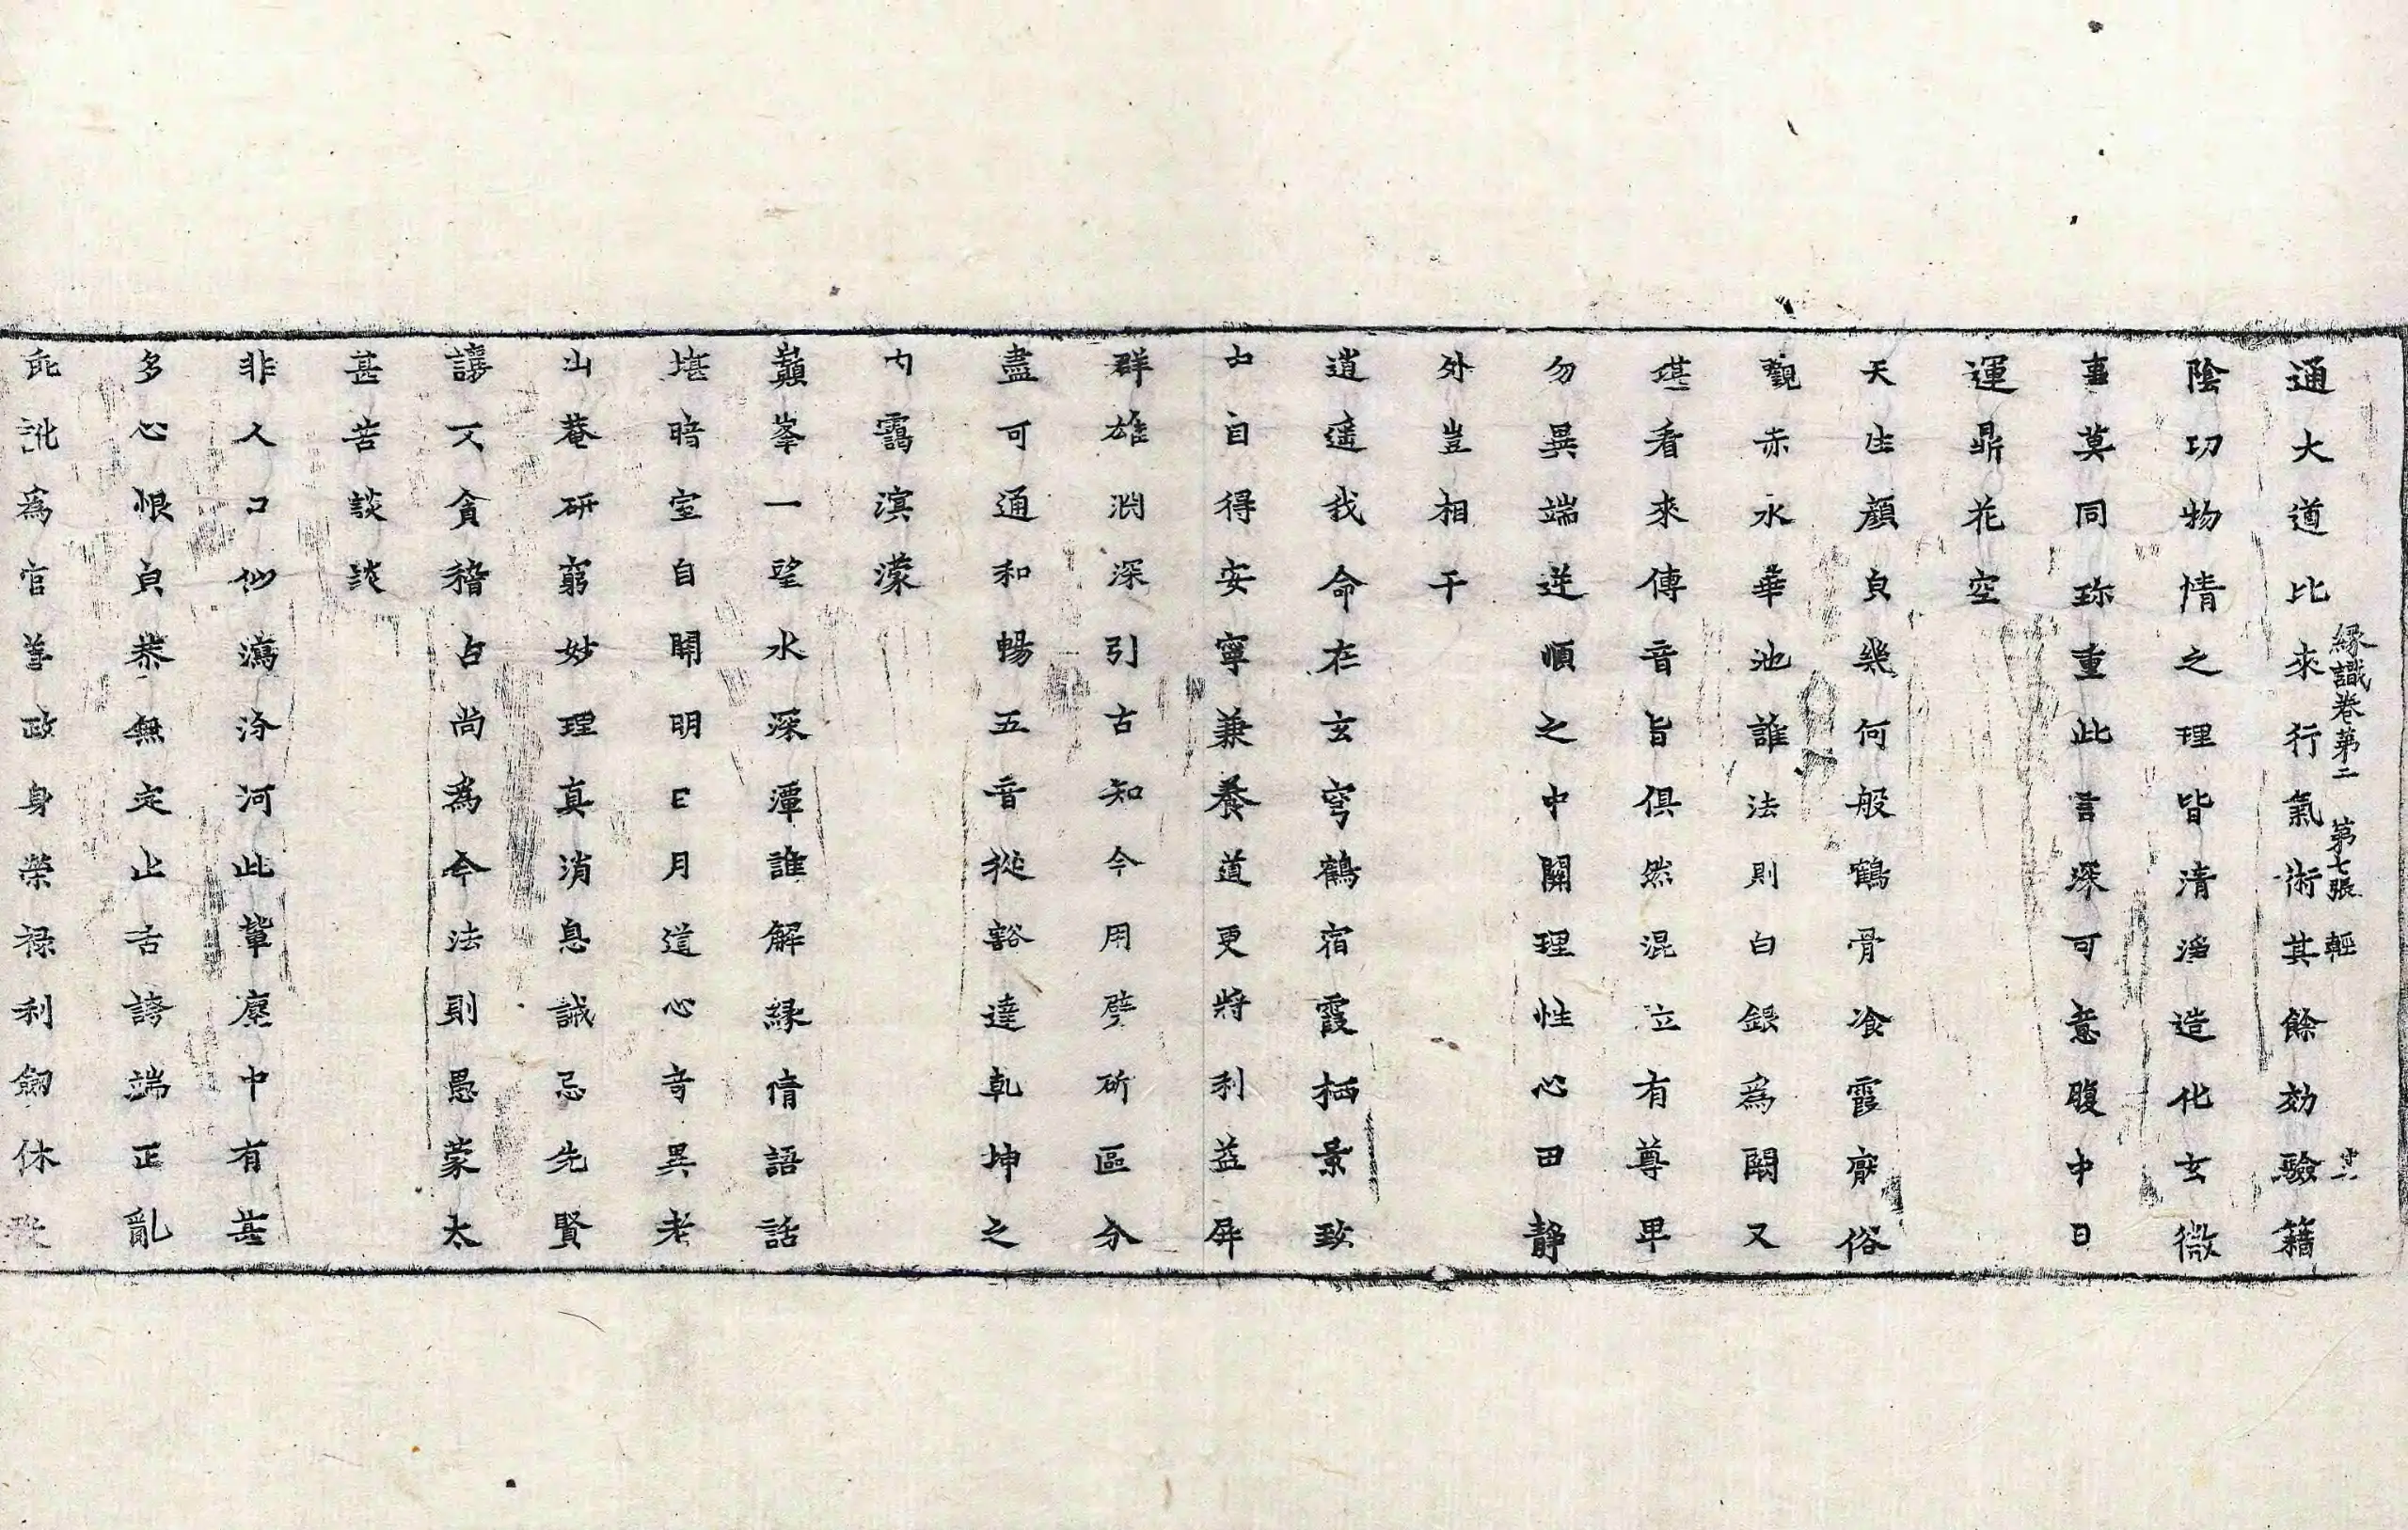 通大道比來行氣術其餘効驗籍
緣識卷第二 第七張 輕
陰功物情之理皆清淨造化玄微
事莫同珎重此言深可意腹中日
運鼎花空
天生顏貞幾何般鶴骨飡霞厭俗
觀赤水華池誰法則白銀為闕又
堪看來傳音旨俱然混立有尊卑
勿異端逆順之中關理性心田靜
外豈相干
逍遙我命在玄穹鶴宿霞栖景致
中自得安寧兼養道更將利益屏
群雄渊深引古知今用劈斫區分
盡可通和暢五音從豁達乾坤之
內靄溟濛
巔峯一望水深潭誰解緣情語話
堪暗室自開明日月道心奇異老
山菴研窮妙理真消息誠忌先賢
讓又貪稽占尚為令法則愚蒙太
甚苦談談
非人口似瀉洿河此輩塵中有甚
多心恨貞恭無定止舌誇端正亂
訛為官善政身榮祿利劒休